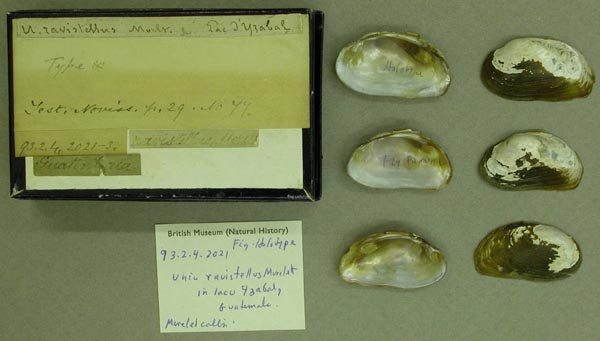 U. ravistellus Morlt. Lac d'Yzabal
Type
Test. Noviss. p. 29. No 77.
93.2.4. 2021-3.
ravistellus, Morelet
Guatemala
British Museum (Natural History)
Fig. Holotype
93.2.4.2021
Unio ravistellus Morelet
in lacu Yzabal,
Guatemala.
Morelet colln.
Holotype
Fig